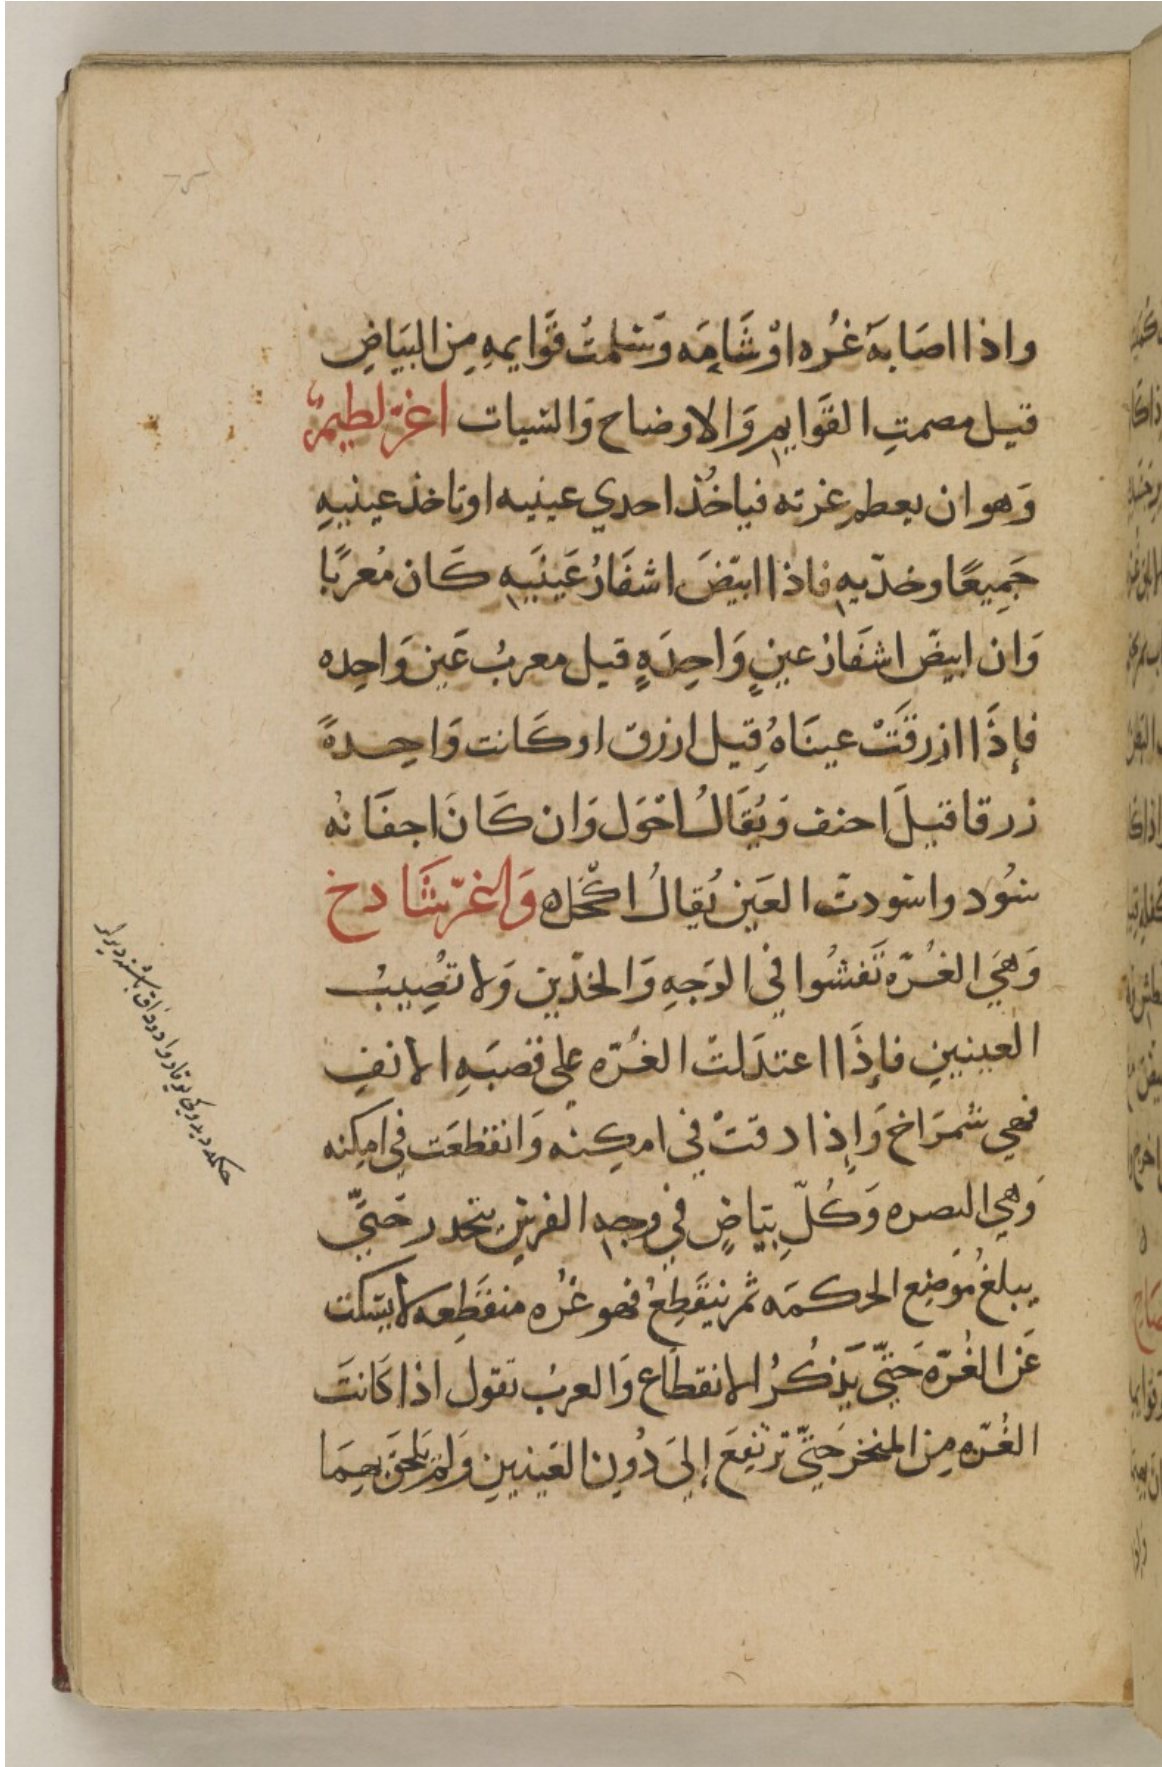 واذا اصَابهُ غُره اوْ شَامَه وَسَلمتْ قَوَايمهِ مِن البَيَاضِ
قيل مصمتِ القَوَايمِ وَالاوضاح وَالشيات اغرّ لطيمٌ
وَهو ان يعطم غرته فياخُذ احدي عينيه او تاخذ عينيهِ
جَمِيعًا وخدّيهِ فاذا ابيّضَ اشفَارُ عَينَيهِ كَان مُعربًا
وَان ابيضّ اشفَارُ عينٍ وَاحِدَهٍ قيل معربُ عَين وَاحِده
فإذَا ازرقَتْ عينَاهُ قِيل ازرق او كَانت وَاحِدةً
زرقا قيلَ احنف وَيُقَالُ احْوَل وَان كَانَ اجفَانهُ
سُود واسودتْ العَين يُقالُ اكْحَل ه وَالغرّ شَادخ
وَهيَ الغُرّه تَفشُوا في الوَجهِ وَالخدّين وَلا تصُِيبُ
العينينِ فإذَا اعتدَلتْ الغُرّه علي قصَبَهِ الانفِ
فهي شمرَاخ وَإِذا دقتْ في امكِنه وَانقطعَت في امكنه
وَهي البصره وَكُلِّ بيَاضٍ في وجهِ الفرسِ يتحدر حَتيّ
يبلغُ مَوضِع الحكمَه ثم ينقَطِعُ فهو غُره منقَطِعه لا يسَكت
عَن الغُرّه حَتيّ يَذكُرُ الانقطَاع وَالعربُ تقول اذا كَانتَ
الغُرّه مِن المنخر حَتيّ ترتفِعَ إليَ دُوِن العَينين وَلمْ يَلحقَ بهِمَا